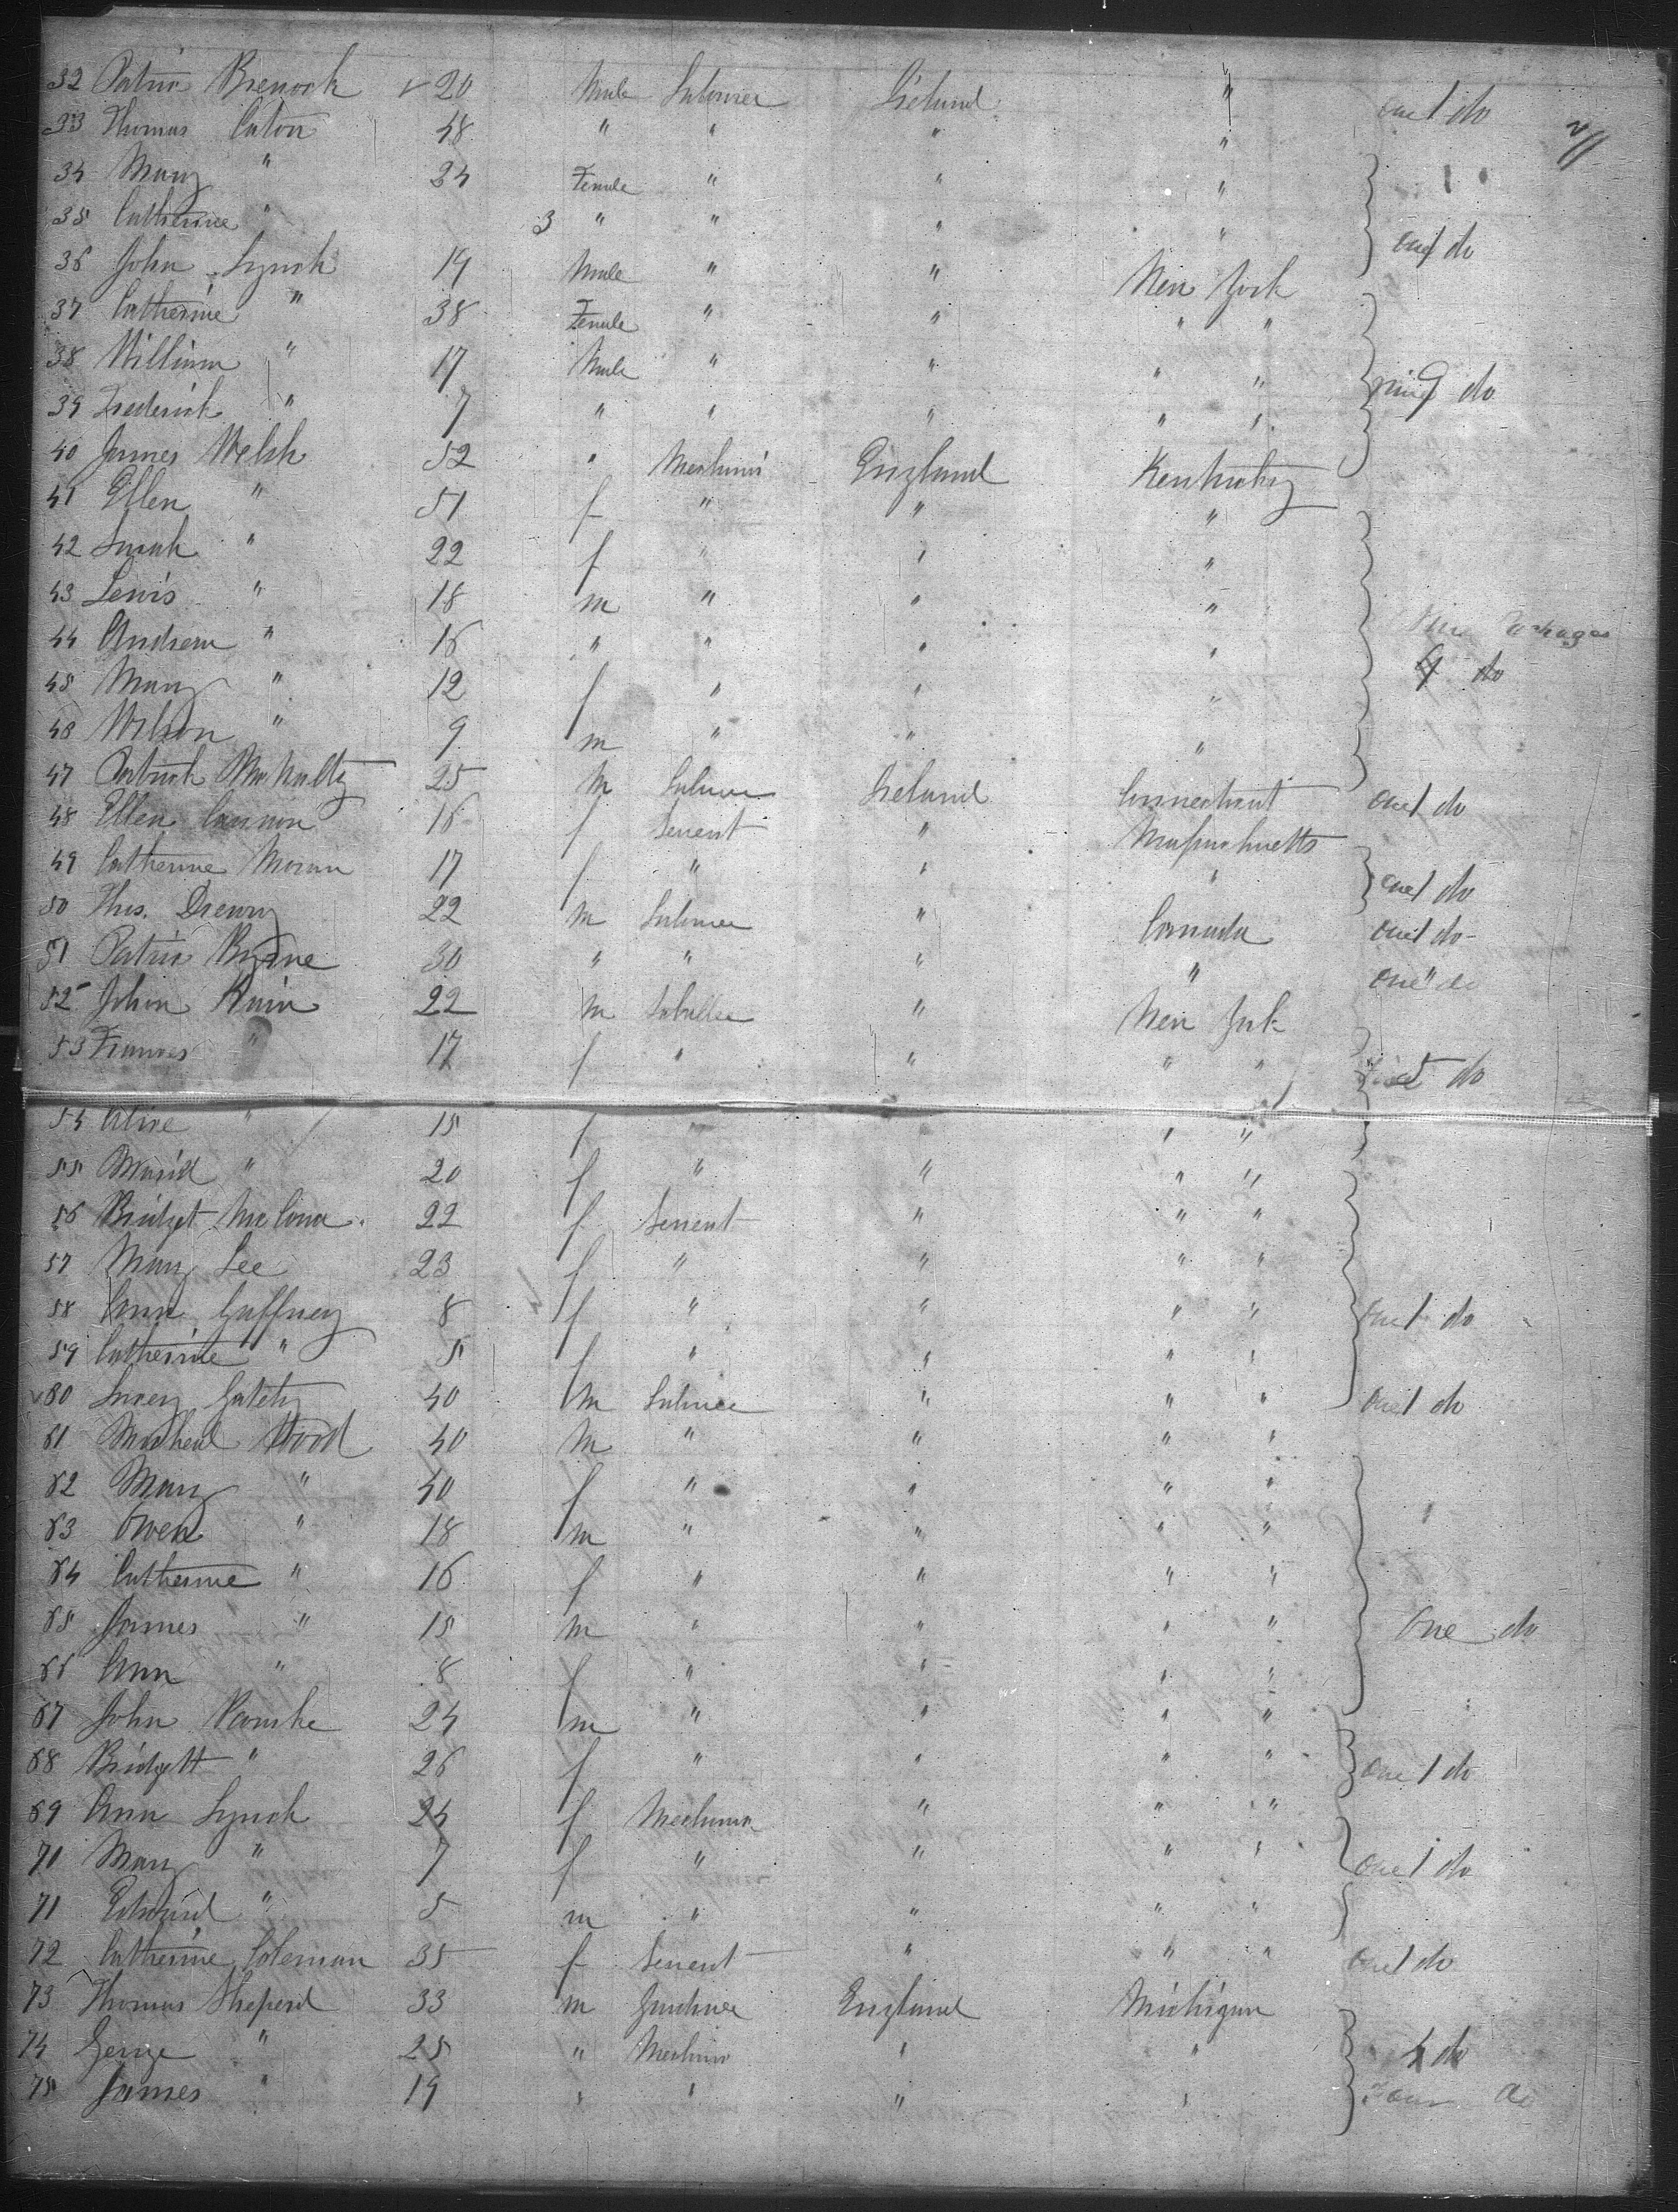 32 Patric Brenock 20 Male Labourer Ireland " one 1 do
33 Thomas Caton 48 " " " "
34 Mary " 24 Female " " "
35 Catherine " 3 " " " " one 1 do
36 John Lynch 14 Male " " New York
37 Catherine " 38 Female " " " "
38 William " 17 Male " " " "
39 Frederick " 7 " " " " " nine 9 do
40 James Welsh 52 " Mechanic England Kentucky
41 Ellen " 51 f " " "
42 Sarah " 22 f " " "
43 Lewis " 18 m " " "
44 Andrew " 16 " " " "
45 Mary " 12 f " " " 9 do
46 Wilson " 9 m " " "
47 Patrick 25 M Labourer Ireland Connecticut one 1 do
48 Ellen Cannion 16 f Servent " Massachuetts
49 Catherine Moran 17 f " " " one 1 do
50 Thos. Dreury 22 m Labourer " Canada one 1 do
51 Patric Byrne 30 " " " " one " do
52 John 22 m " New York
53 Frances " 17 f " " " " 5 do
54 Alice " 15 f " " " "
55 Maria " 20 f " " " "
56 Bridget 22 f Servent " " "
57 Mary Lee 23 f " " " "
58 Ann Gaffney 8 f " " " " one 1 do
59 Catherine " 5 f " " " "
60 Gately 40 m Labourer " " " one 1 do
61 Micheal Wood 40 m " " " "
62 Mary " 40 f " " " "
63 Owen " 18 m " " " "
64 Catherine " 16 f " " " "
65 James " 15 m " " " " One do
66 Ann " 8 f " " " "
67 John 24 m " " " "
68 Bridgett " 26 f " " " " one 1 do
69 Ann Lynch 24 f Mechanic " " "
70 Mary " 7 f " " " " one 1 do
71 Edward " 5 m " " " "
72 Catherine Coleman 35 f Servent " " " one 1 do
73 Thomas Sheperd 33 m Gardner England Michigan
74 George " 25 " Mechanic " " 4 do
75 James " 19 " " " " Four do